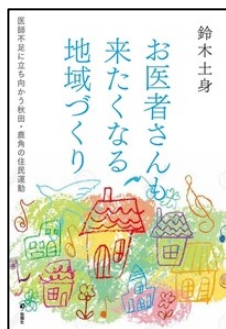 鈴木土身
お医者さんも
来たくなる
地域づくり
医師不足に立ち向かう秋田・鹿角の住民運動